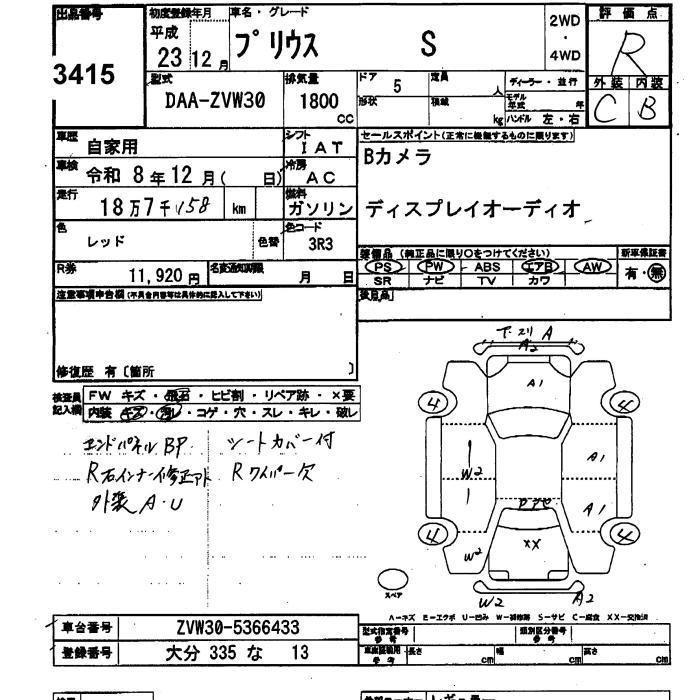 出品番号
3415
初度登録年月
平成
23 12月
車名・グレード
プリウス S
2WD
・
4WD
評価点
R
外装 内装
C B
型式
DAA-ZVW30
排気量
1800
CC
ドア
5
定員
人
形状
積載
kg
ディーラー・並行
モデル年式 年
ハンドル 左・右
車歴
自家用
シフト
IAT
車検
令和 8年12月( 日)
冷房
AC
走行
18万7千158 km
燃料
ガソリン
色
レッド
色替
色コード
3R3
R券
11,920円
名変通知期限
月 日
セールスポイント(正常に機能するものに限ります)
Bカメラ
ディスプレイオーディオ
装備品 (純正品に限り○をつけてください)
新車保証書
PS PW ABS エアB AW
SR ナビ TV カワ
有・無
後日品
注意事項申告欄(不具合内容等は具体的に記入して下さい)
修復歴 有〔箇所 〕
検査員
記入欄
FW キズ・飛石・ヒビ割・リペア跡・×要
内装 キズ・汚レ・コゲ・穴・スレ・キレ・破レ
エンドパネルBP シートカバー付
R右インナー修正アト Rワイパー欠
外装A・U
A
A2
A1
4
4
W2
A1
A1
4
4
W2
XX
W2
A2
スペア
A-キズ E-エクボ U-凹み W-補修跡 S-サビ C-腐食 XX-交換済
車台番号
ZVW30-5366433
登録番号
大分 335 な 13
型式指定番号
参考
類別区分番号
参考
車庫証明用
参考
長さ
cm
幅
cm
高さ
cm